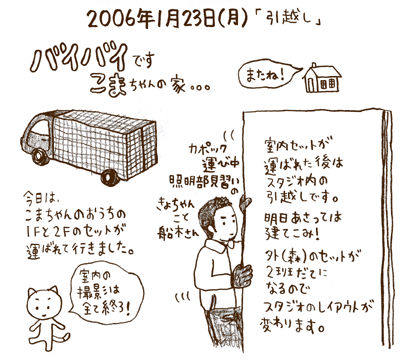 2006年1月23日(月)「引越し」
バイバイです
こまちゃんの家...
またね!
カポック
運び中
照明部見習いの
きょちゃん
こと
船木さん
室内セットが
運ばれた後は
スタジオ内の
引越しです。
明日あさっては
建てこみ!
外(森)のセットが
2班だてに
なるので
スタジオのレイアウトが
変わります。
今日は、
こまちゃんのおうちの
1Fと2Fのセットが
運ばれて行きました。
室内の
撮影は
全て終了!